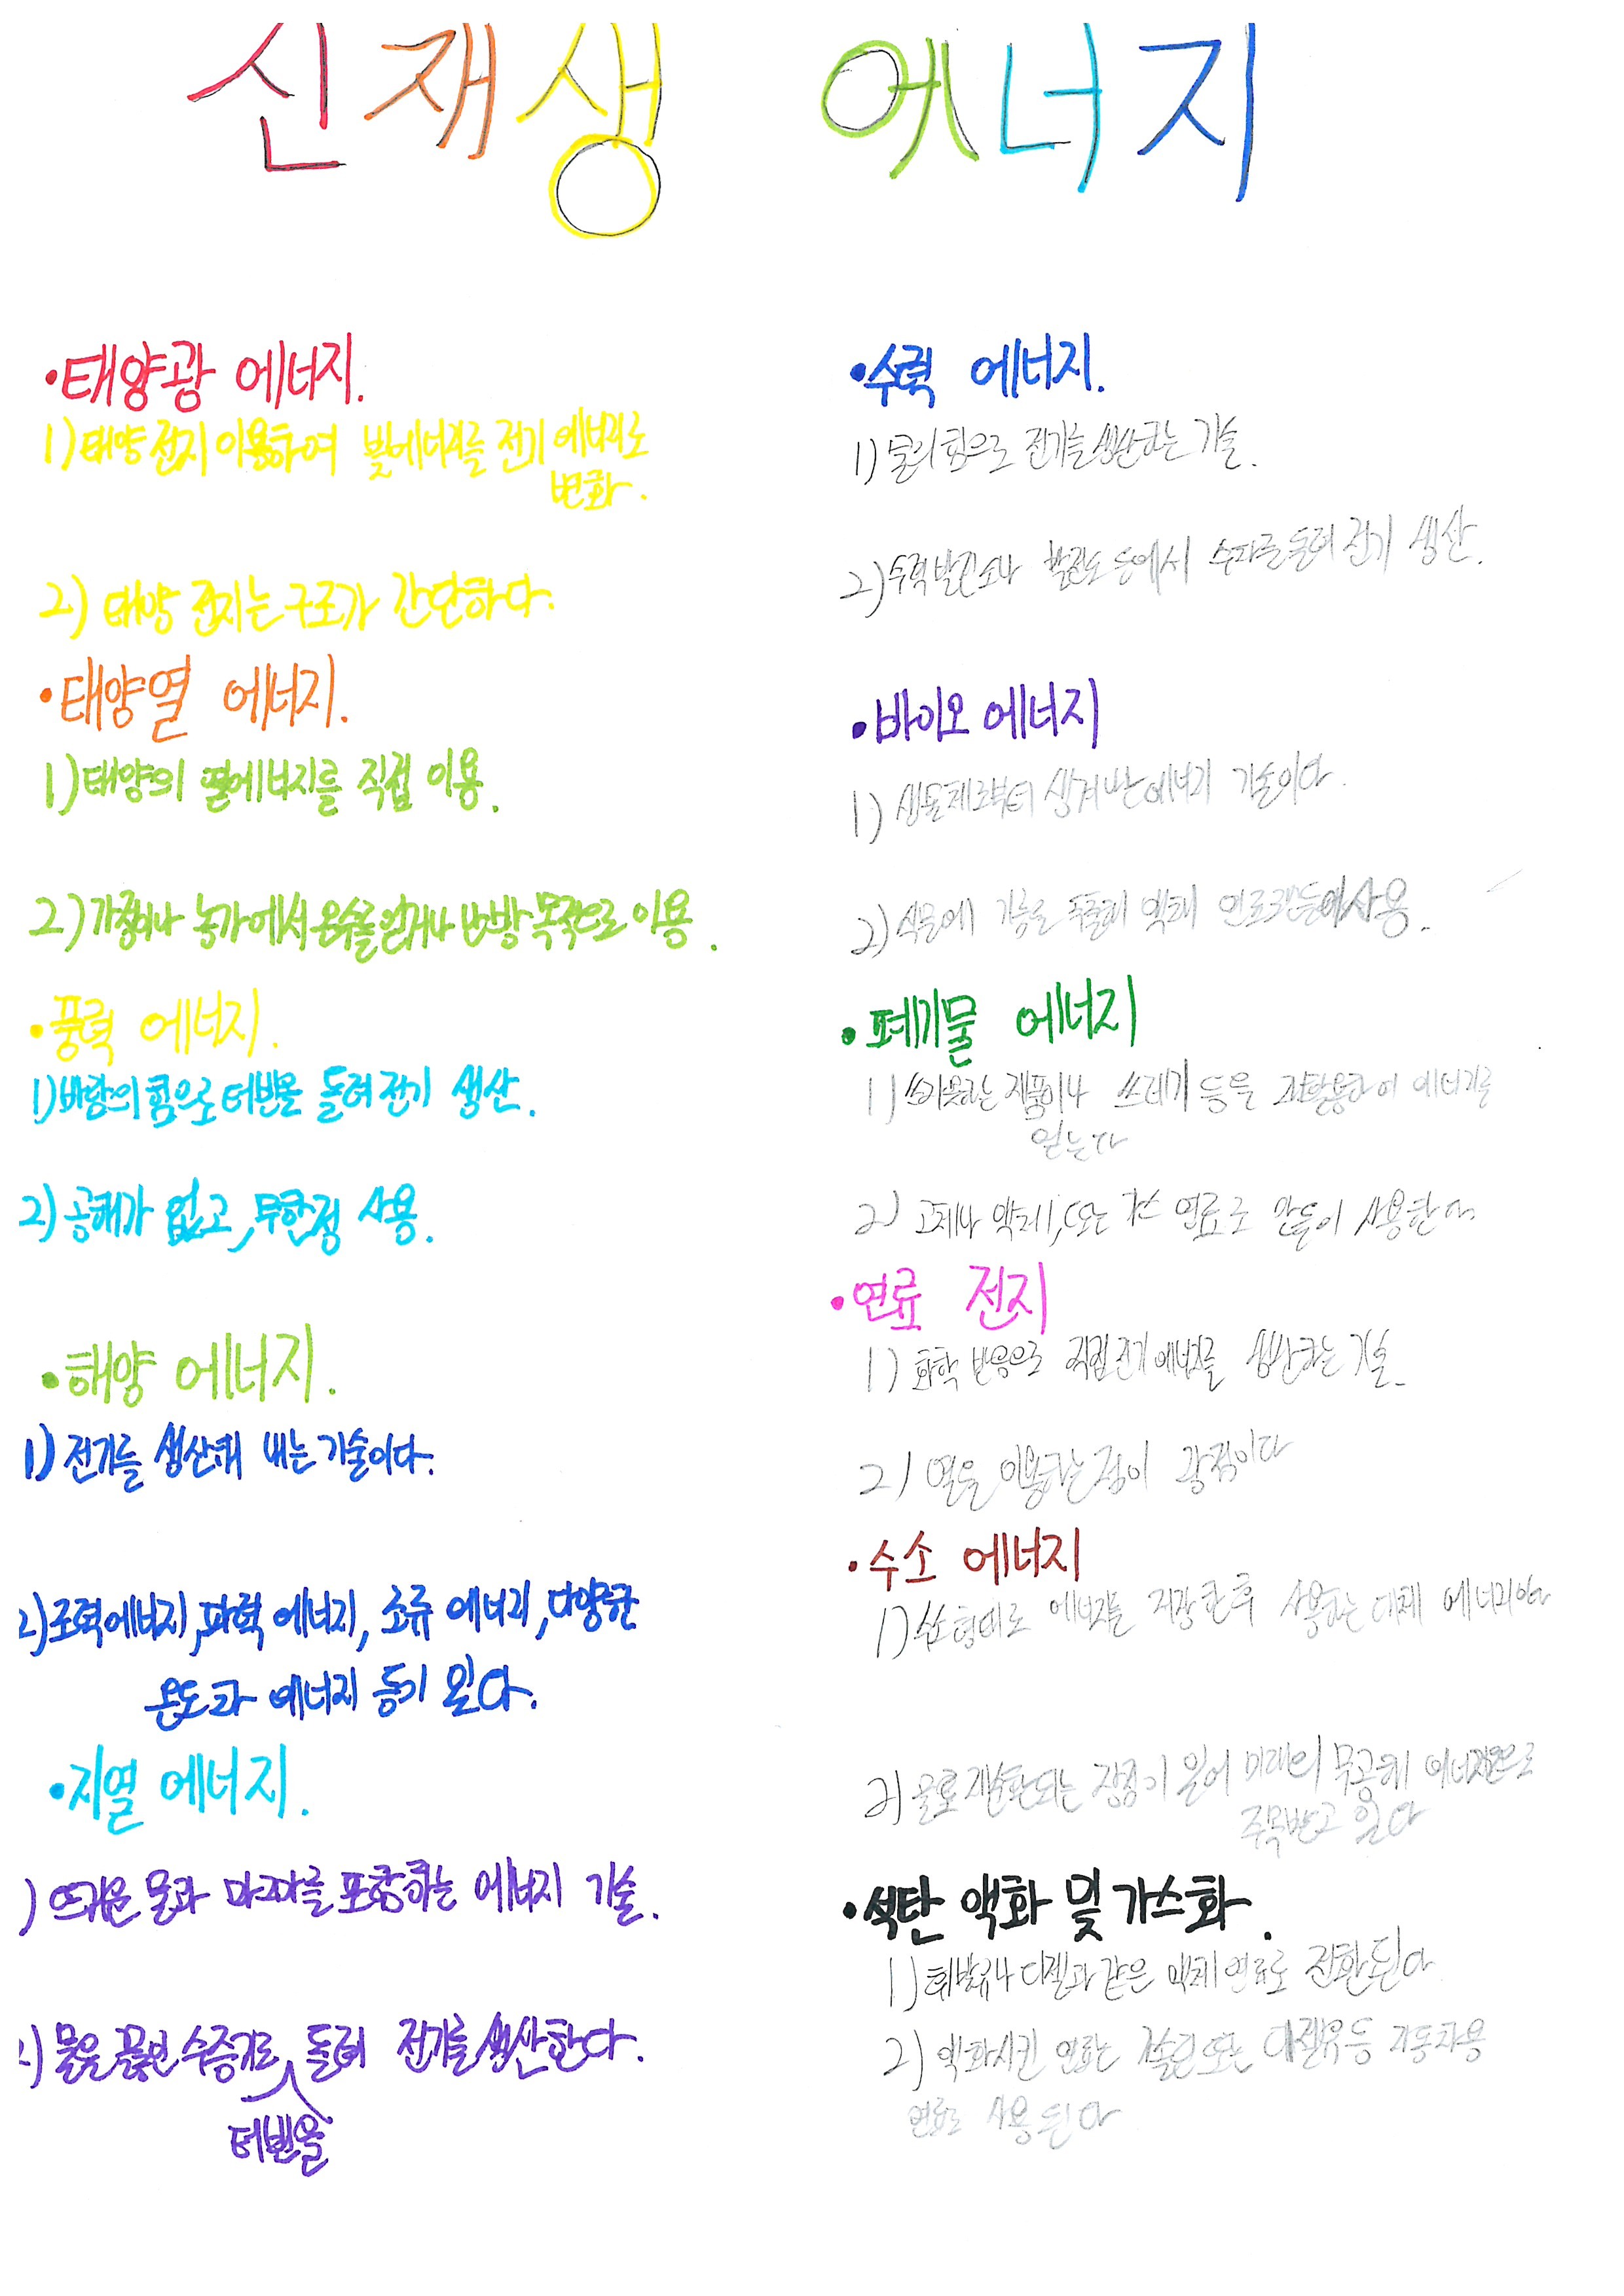 신재생 에너지
·태양광 에너지.
1) 태양 전지 이용하여 빛에너지를 전기 에너지로
변화.
2) 태양 전지는 구조가 간단하다.
·태양열 에너지.
1) 태양의 열에너지를 직접 이용.
2) 가정이나 농가에서 온수를 얻거나 난방 목적으로 이용.
·풍력 에너지.
1) 바람의 힘으로 터빈을 돌려 전기 생산.
2) 공해가 없고, 무한정 사용.
·해양 에너지.
1) 전기를 생산해 내는 기술이다.
2) 조력에너지, 파력 에너지, 조류 에너지, 다양한
온도차 에너지 등이 있다.
·지열 에너지.
) 뜨거운 물과 마그마를 포함하는 에너지 기술.
2) 물을 끓인 수증기로 터빈을 돌려 전기를 생산한다.
·수력 에너지.
1) 물의 힘으로 전기를 생산하는 기술.
2) 수력발전소나 발전소 등에서 수차를 돌려 전기 생산.
·바이오 에너지
1) 생물체로부터 생겨난 에너지 기술이다.
2) 식물에 기름을 추출해 액체 연료 등에 사용.
·폐기물 에너지
1) 쓰이못하는 제품이나 쓰레기 등을 재활용하여 에너지를
얻는다
2) 고체나 액체, 또는 가스 연료로 만들어 사용한다.
·연류 전지
1) 화학 반응으로 직접 전기 에너지를 생산하는 기술.
2) 열을 이용하는 점이 강점이다
·수소 에너지
1) 수소 형태로 에너지를 저장한 후 사용하는 대체 에너지이다
2) 물로 재순환되는 장점이 있어 미래의 무공해 에너지원으로
주목받고 있다
·석탄 액화 및 가스화.
1) 휘발유나 디젤과 같은 액체 연료로 전환된다
2) 액화시킨 연료는 가솔린 또는 디젤유 등 자동차용
연료로 사용된다